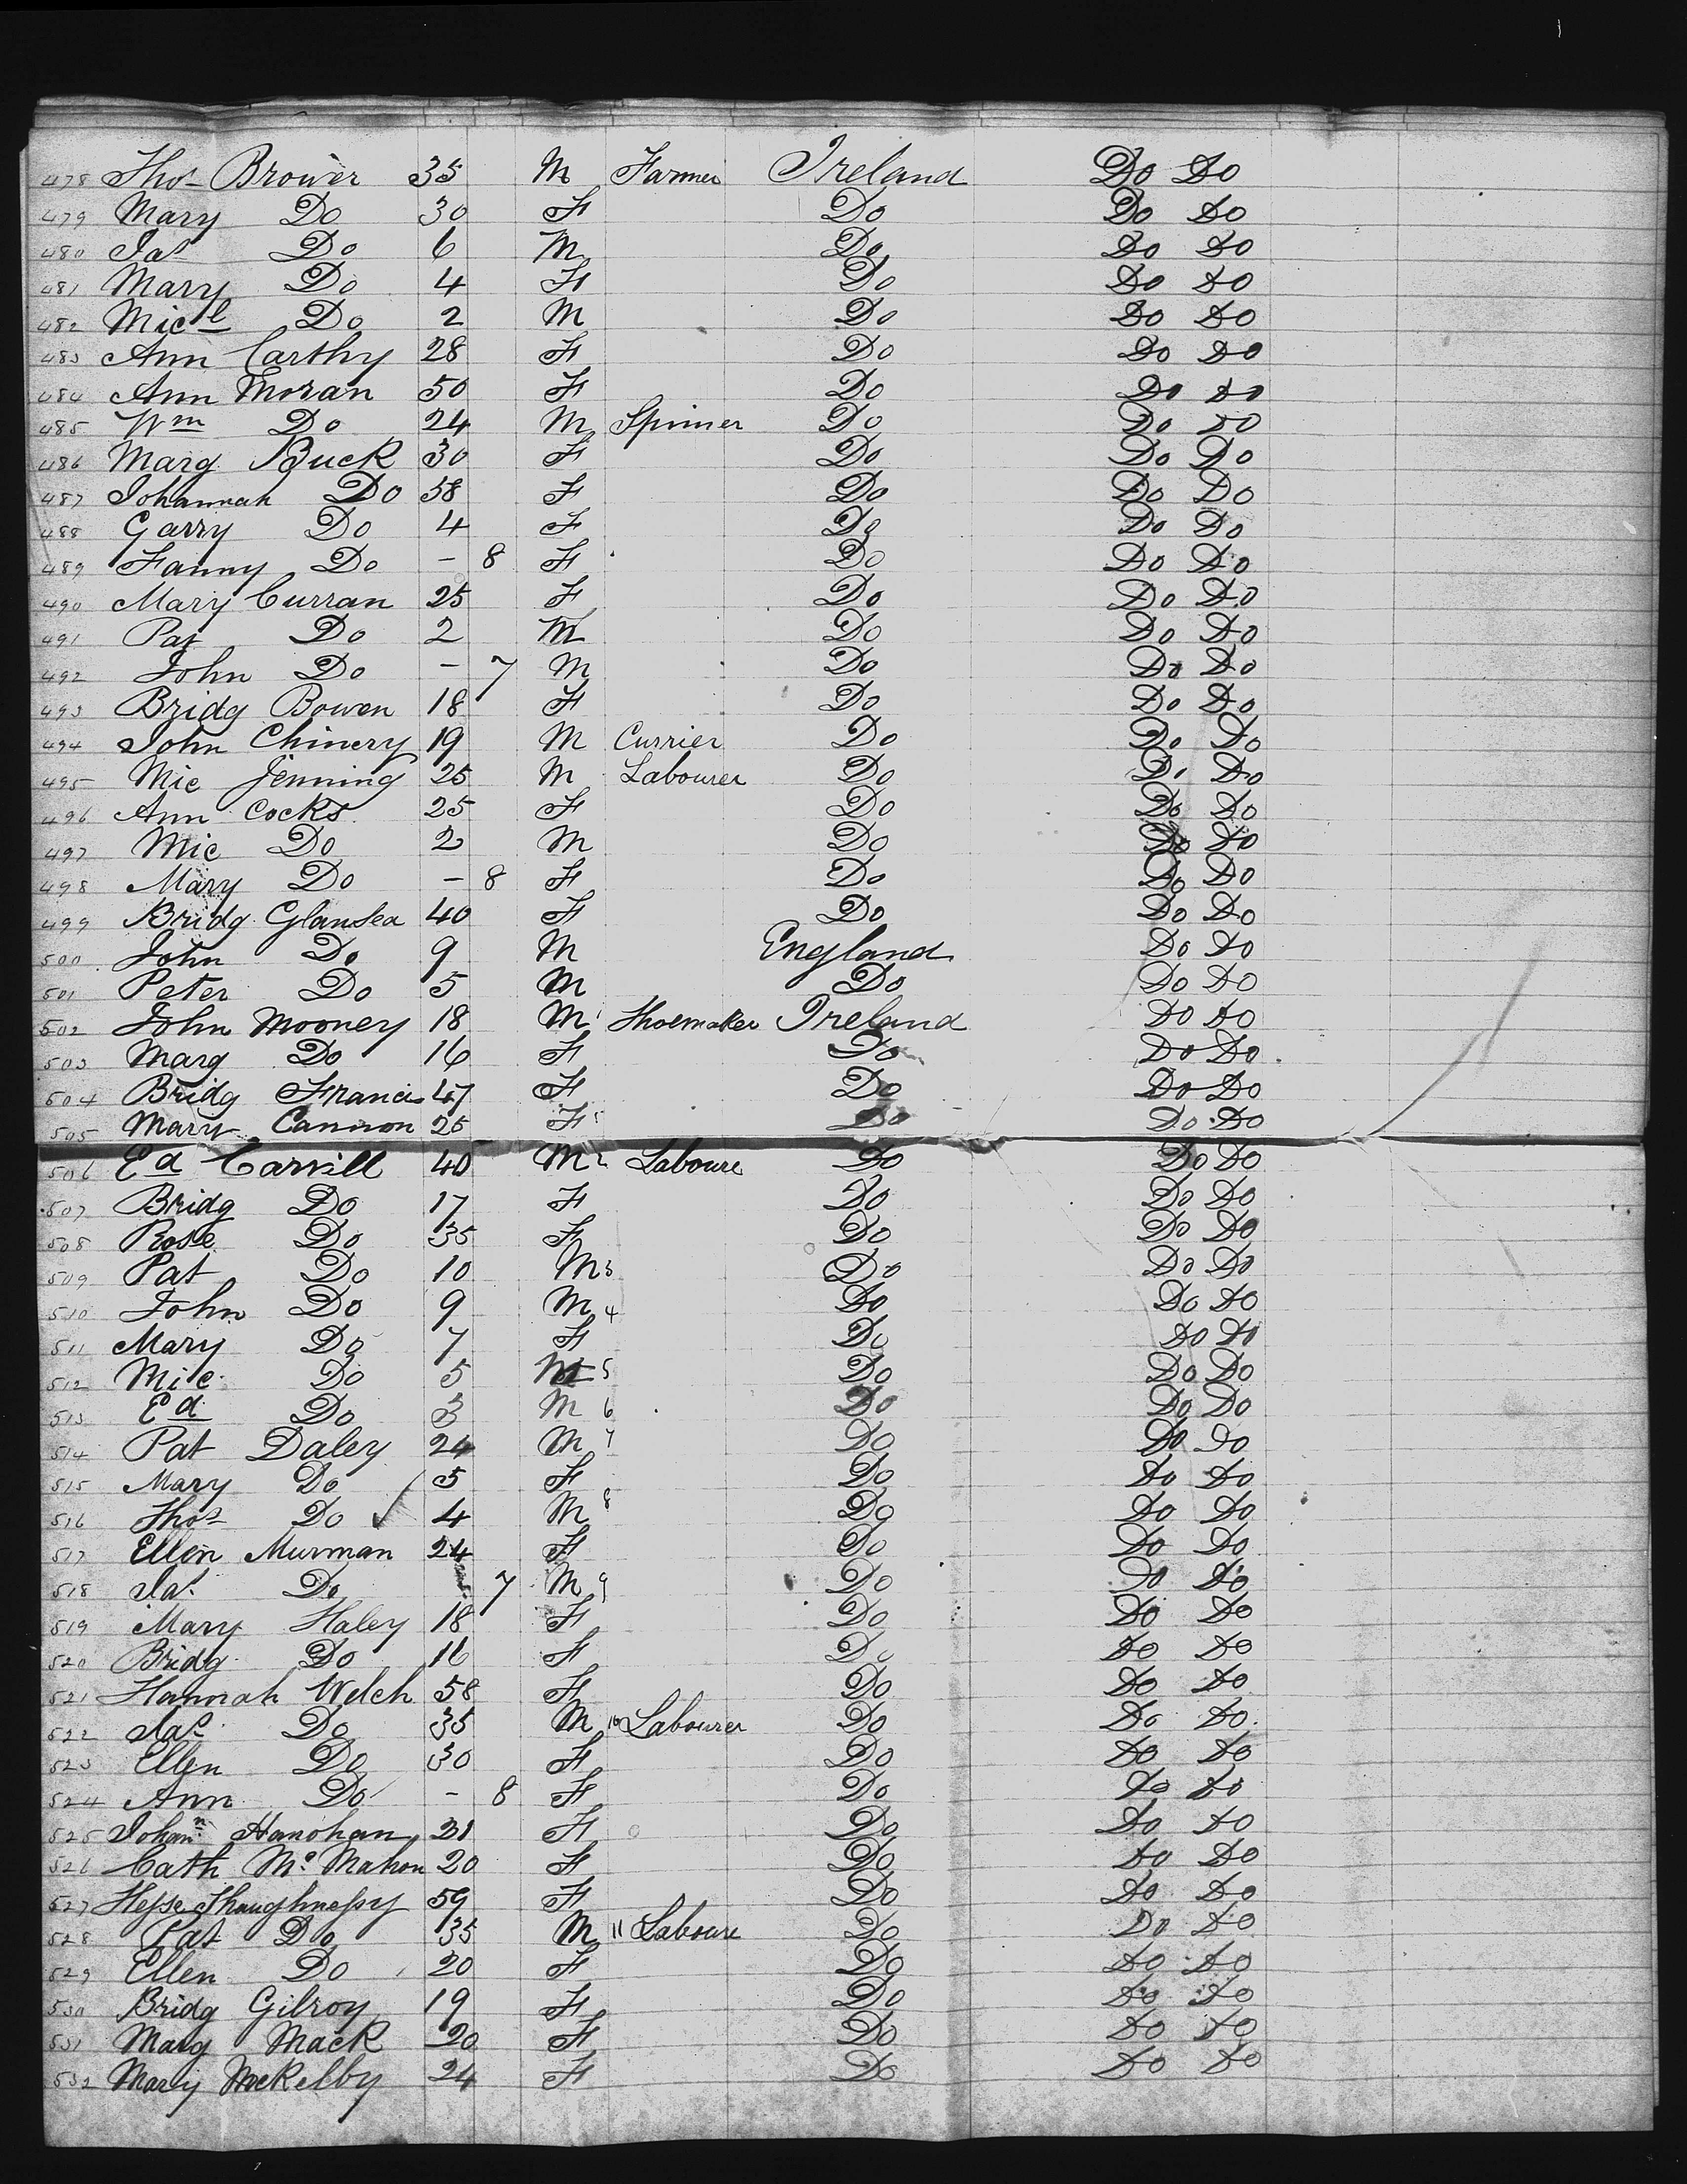 478 Thos Brower 35 M Farmer Ireland Do Do
479 Mary Do 30 F Do Do Do
480 Jas Do 6 M Do Do Do
481 Mary Do 4 F Do Do Do
482 Micl Do 2 M Do Do Do
483 Ann Carthy 28 F Do Do Do
484 Ann Moran 50 F Do Do Do
485 Wm Do 24 M Spinner Do Do Do
486 Marg Buck 30 F Do Do Do
487 Johannah Do 58 F Do Do Do
488 Garry Do 4 F Do Do Do
489 Fanny Do - 8 F Do Do Do
490 Mary Curran 25 F Do Do Do
491 Pat Do 2 M Do Do Do
492 John Do - 7 M Do Do Do
493 Bridg Bowen 18 F Do Do Do
494 John Chinery 19 M Currier Do Do Do
495 Mic Jenning 25 M Labourer Do Do Do
496 Ann Cocks 25 F Do Do Do
497 Mic Do 2 M Do Do Do
498 Mary Do - 8 F Do Do Do
499 Bridg Glansea 40 F Do Do Do
500 John Do 9 M England Do Do
501 Peter Do 5 M Do Do Do
502 John Mooney 18 M Shoemaker Ireland Do Do
503 Marg Do 16 F Do Do Do
504 Bridg Francis 47 F Do Do Do
505 Mary Cannon 25 F Do Do Do
506 Ed Carvill 40 M 2 Laboure Do Do Do
507 Bridg Do 17 F Do Do Do
508 Rose Do 35 F Do Do Do
509 Pat Do 10 M 3 Do Do Do
510 John Do 9 M 4 Do Do Do
511 Mary Do 7 F Do Do Do
512 Mic Do 5 M 5 Do Do Do
513 Ed Do 3 M 6 Do Do Do
514 Pat Daley 24 M 7 Do Do Do
515 Mary Do 5 F Do Do Do
516 Thos Do ✓ 4 M 8 Do Do Do
517 Ellen Murman 24 F Do Do Do
518 Jas Do 7 M 9 Do Do Do
519 Mary Haley 18 F Do Do Do
520 Bridg Do 16 F Do Do Do
521 Hannah Welch 58 F Do Do Do
522 Jas Do 35 M 10 Labourer Do Do Do
523 Ellen Do 30 F Do Do Do
524 Ann Do - 8 F Do Do Do
525 Johann Hanohan 21 F Do Do Do
526 Cath Mc Mahon 20 F Do Do Do
527 Hesse Shaughnessy 59 F Do Do Do
528 Pat Do 35 M 11 Laboure Do Do Do
529 Ellen Do 20 F Do Do Do
530 Bridg Gilroy 19 F Do Do Do
531 Marg Mack 20 F Do Do Do
532 Mary McKelby 24 F Do Do Do